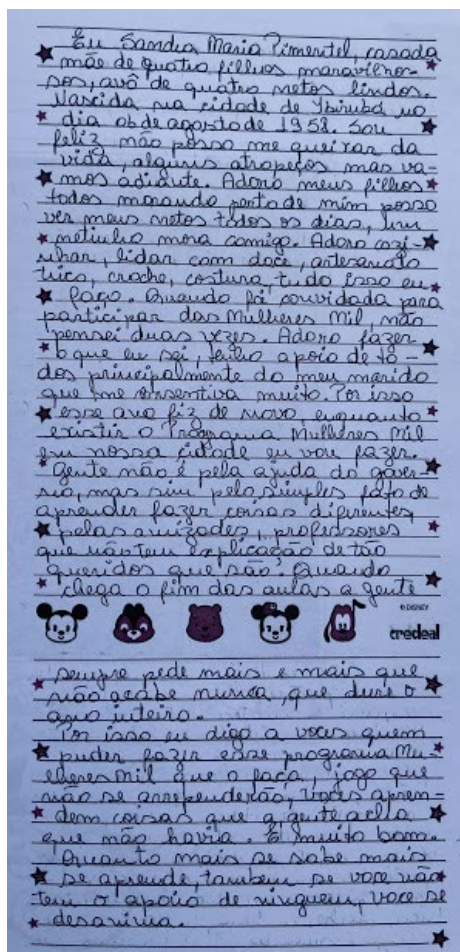 Eu Sandra Maria Pimentel, casada
mãe de quatro filhos maravilho-
sos, avó de quatro netos lindos.
Nascida na cidade de Ibirubá no
dia 06 de agosto de 1958. Sou
feliz não posso me queixar da
vida, alguns atropeços mas va-
mos adiante. Adoro meus filhos
todos morando perto de mim posso
ver meus netos todos os dias, um
netinho mora comigo. Adoro cozi-
nhar, lidar com doce, artesanato
trico, croche, costura, tudo isso eu
faço. Quando fui convidada para
participar das Mulheres Mil, não
pensei duas vezes. Adoro fazer
o que eu sei, tenho apoio de to-
dos principalmente do meu marido
que me insentiva muito. Por isso
esse ano fiz de novo, enquanto
existir o Programa Mulheres Mil
em nossa cidade eu vou fazer.
Gente não é pela ajuda do gover-
no, mas sim pelo simples fato de
aprender fazer coisas diferentes,
pelas amizades, professores
que não tem explicação de tão
queridos que são. Quando
chega o fim das aulas a gente
© DISNEY
credeal
sempre pede mais e mais que
não acabe nunca, que dure o
ano inteiro.
Por isso eu digo a voces quem
puder fazer esse programa Mu-
lheres Mil que o faça, jogo que
não se arrependerão, voces apren-
dem coisas que a gente acha
que não havia. É muito bom.
Quanto mais se sabe mais
se aprende, tambem se voce não
tem o apoio de ninguem, voce se
desanima.